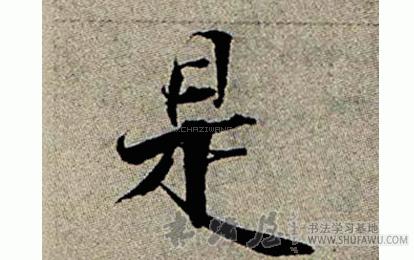 是
WWW.CHAZIWANG.COM
书法学习基地
WWW.SHUFAWU.COM